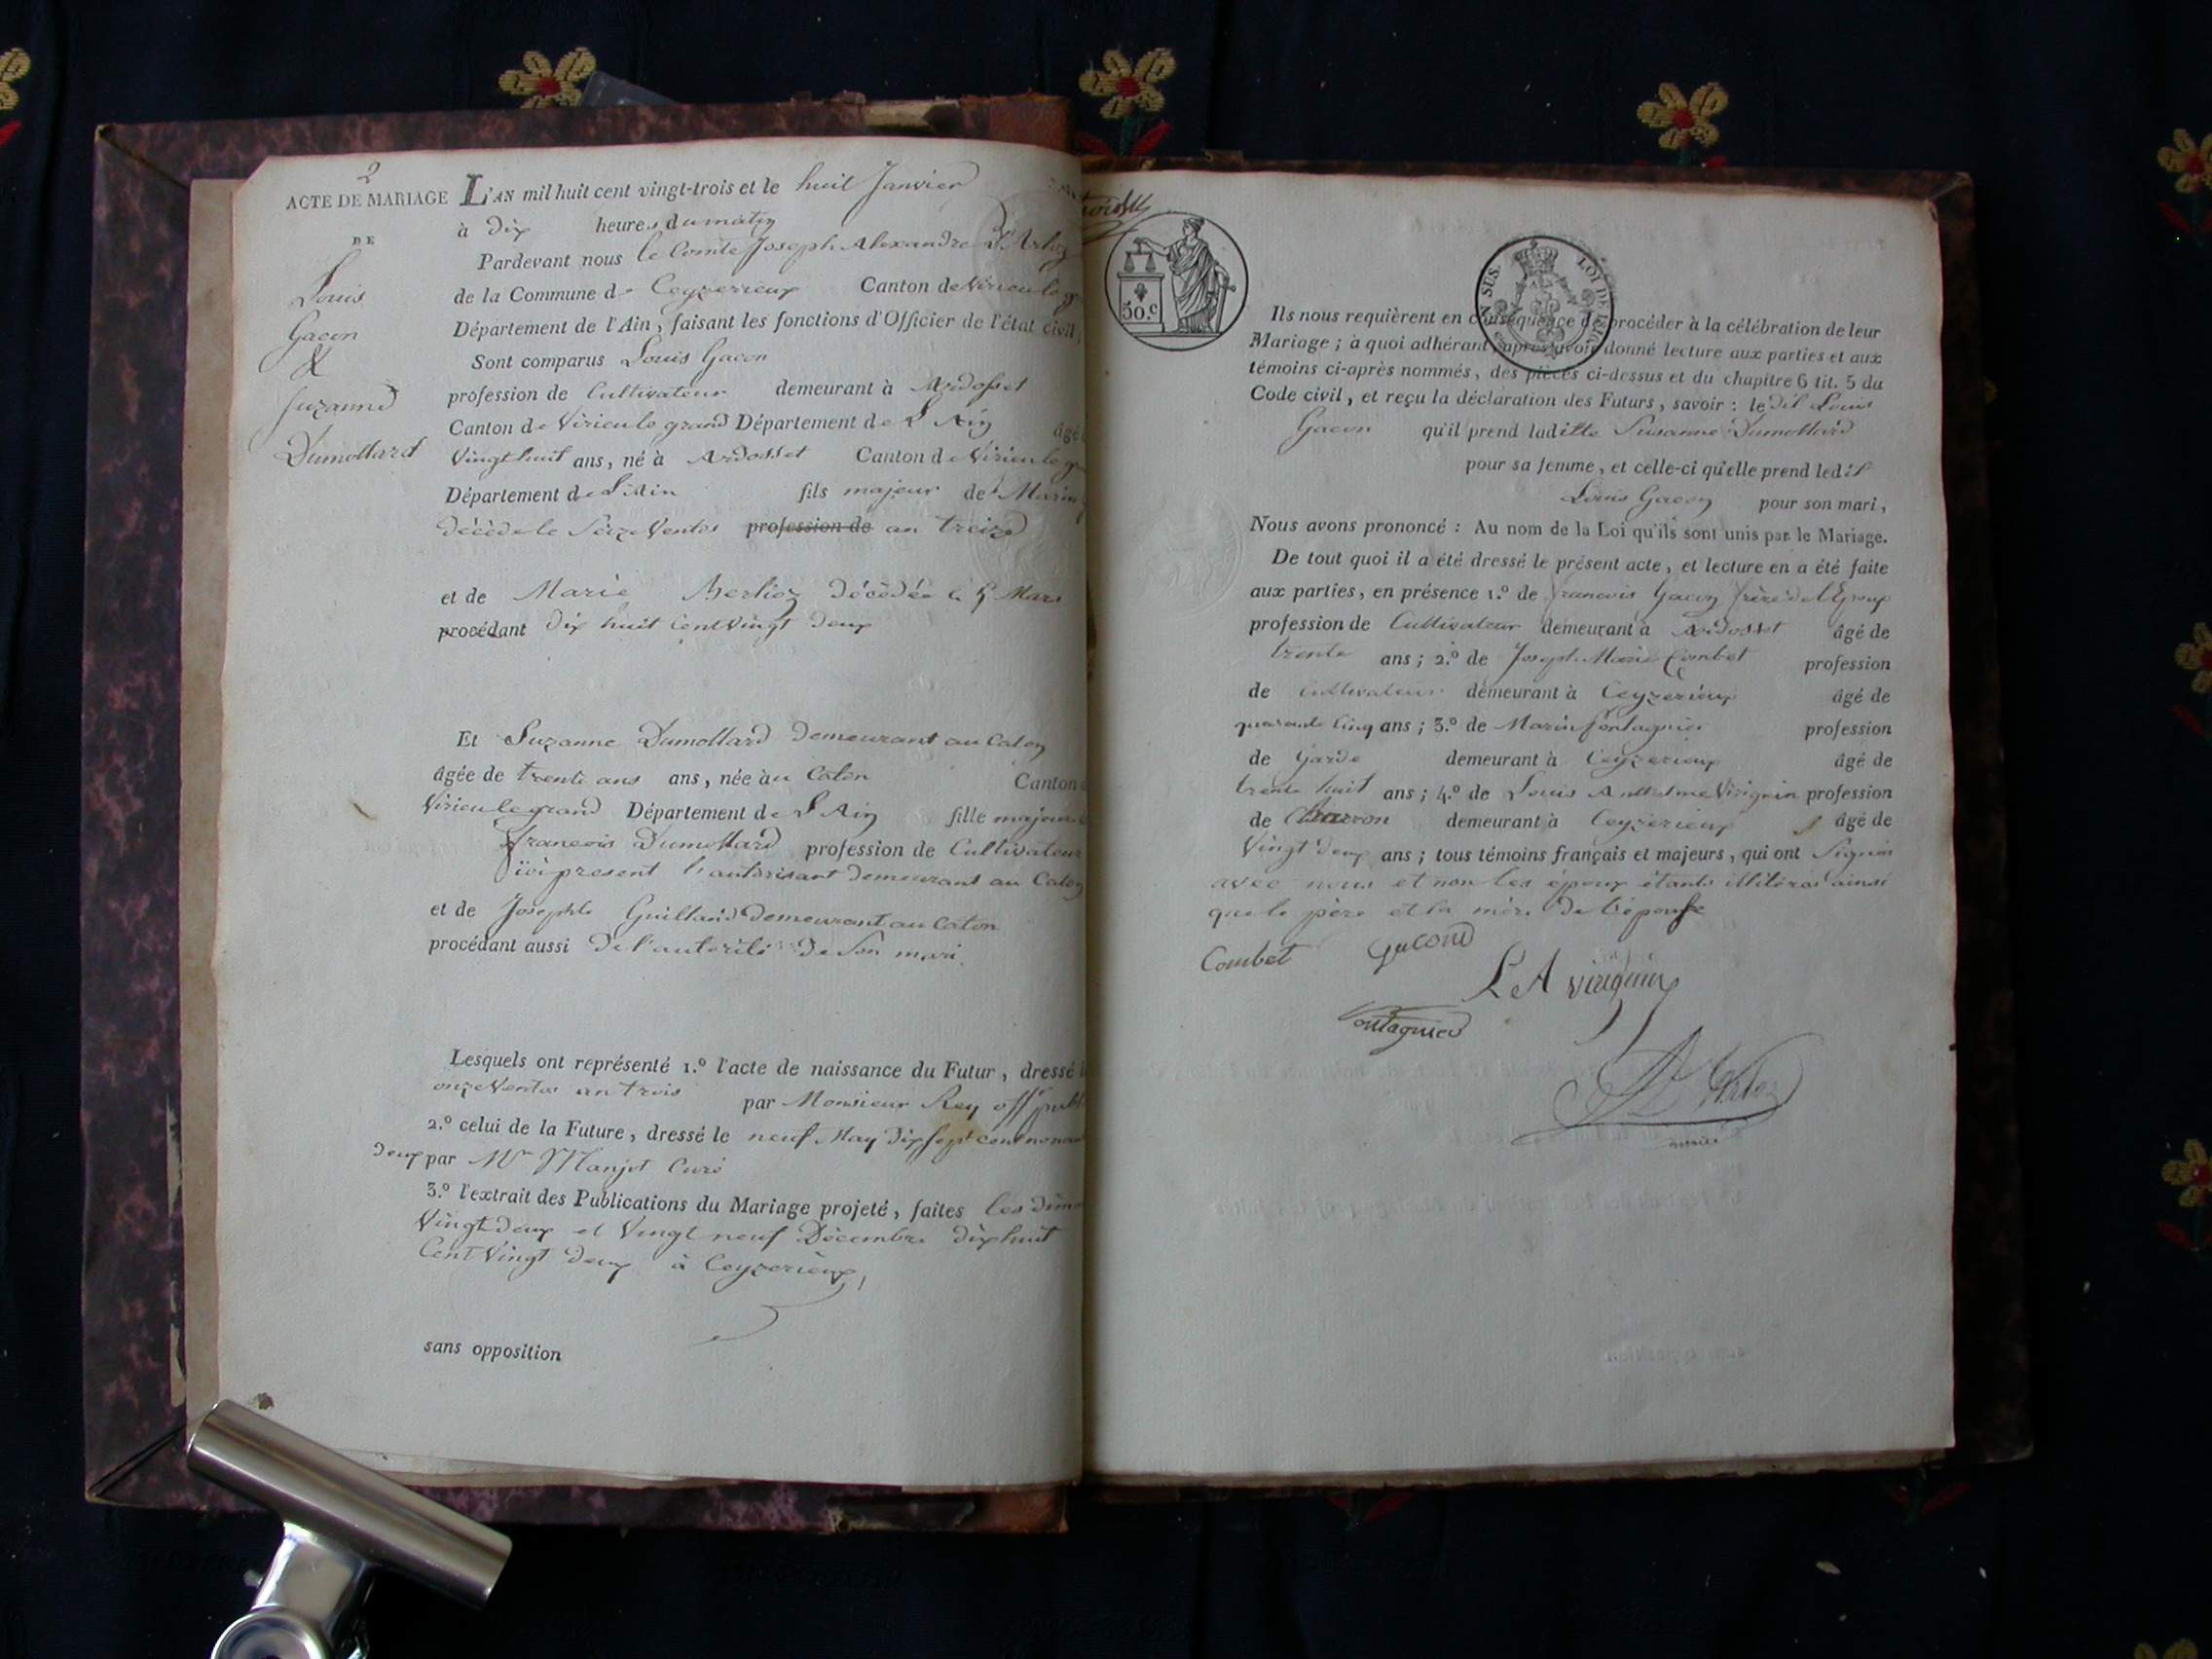 2
ACTE DE MARIAGE
DE
Louis
Gacon
&
Suzanne
Dumollard
L'AN mil huit cent vingt-trois et le huit Janvier
à dix heures du matin
Pardevant nous le Comte Joseph Alexandre D'Arloz
de la Commune de Ceyzerieux Canton de Virieu le
Département de l'Ain, faisant les fonctions d'Officier de l'état civil,
Sont comparus Louis Gacon
profession de Cultivateur demeurant à Ardosset
Canton de Virieu le grand Département de L'Ain âgé
Vingt huit ans, né à Ardosset Canton de Virieu le
Département de L'Ain fils majeur de Marin
décédé le Seize Ventos profession de an treize
et de Marie Berlioz décédée le 5 Mars
procédant dix huit Cent Vingt deux
Et Suzanne Dumollard demeurant au Caton
âgée de trente ans ans, née au Caton Canton
Virieu le grand Département de L'Ain fille majeure
francois Dumollard profession de Cultivateur
ici present l'autorisant demeurant au Caton
et de Josephte Guilland demeurant au Caton
procédant aussi de l'autorité de Son mari.
Lesquels ont représenté 1.º l'acte de naissance du Futur, dressé
onze Ventos an trois par Monsieur Rey off publ
2.º celui de la Future, dressé le neuf May dix sept cent nonan
deux par Mr Manjot Curé
3.º l'extrait des Publications du Mariage projeté, faites les dim
Vingt deux et Vingt neuf Décembre dix huit
Cent Vingt deux à Ceyzerieux,
sans opposition
50.c
Ils nous requièrent en conséquence de procéder à la célébration de leur
Mariage; à quoi adhérant, après avoir donné lecture aux parties et aux
témoins ci-après nommés, des pièces ci-dessus et du chapitre 6 tit. 5 du
Code civil, et reçu la déclaration des Futurs, savoir: le dit Louis
Gacon qu'il prend ladille Susanne Dumollard
pour sa femme, et celle-ci qu'elle prend ledit
Louis Gacon pour son mari,
Nous avons prononcé: Au nom de la Loi qu'ils sont unis par le Mariage.
De tout quoi il a été dressé le présent acte, et lecture en a été faite
aux parties, en présence 1.º de francois Gacon frère de l'Epoux
profession de Cultivateur demeurant à Ardosset âgé de
trente ans; 2.º de Joseph Marie Combet profession
de Cultivateur demeurant à Ceyzerieux âgé de
quarante Cinq ans; 3.º de Marin fontagnier profession
de Garde demeurant à Ceyzerieux âgé de
trente huit ans; 4.º de Louis Anthelme Virignin profession
de Charron demeurant à Ceyzerieux âgé de
Vingt deux ans; tous témoins français et majeurs, qui ont Signés
avec nous et non les époux étants illitéras ainsi
que le père et la mère de l'épouse
Combet Gacond
L A virignin
fontagnier
maire